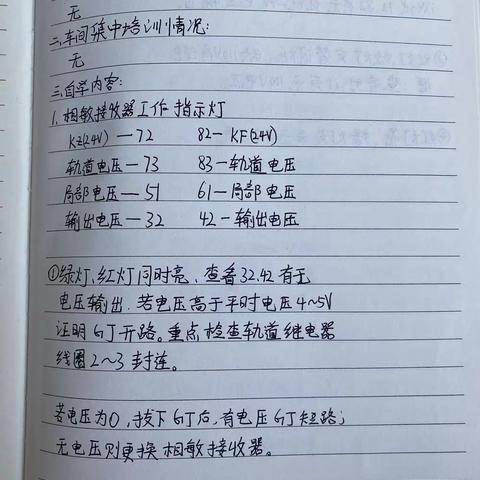 无
二、车间集中培训情况:
无
三、自学内容:
1. 相敏接收器工作指示灯
KZ(24V) — 72 82 — KF(24V)
轨道电压 — 73 83 — 轨道电压
局部电压 — 51 61 — 局部电压
输出电压 — 32 42 — 输出电压
①绿灯、红灯同时亮、查看32.42有无
电压输出.若电压高于平时电压4~5V
证明GJ开路。重点检查轨道继电器
线圈2~3封连。
若电压为0,拔下GJ后,有电压GJ短路;
无电压则更换相敏接收器。